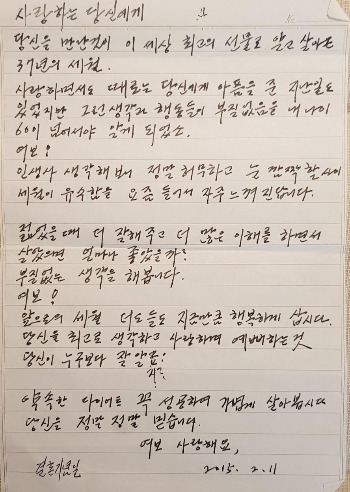 사랑하는 당신에게
당신을 만난것이 이 세상 최고의 선물로 알고 살아온
37년의 세월.
사랑하면서도 때로는 당신에게 아픔을 준 지난일도
있었지만 그런생각과 행동들이 부질없음을 내 나이
60이 넘어서야 알게 되었소.
여보!
인생사 생각해보니 정말 허무하고 눈 깜짝할사이
세월이 유수함을 요즘 들어서 자주 느껴 진답니다.
젊었을때 더 잘해주고 더 많은 이해를 하면서
살았으면 얼마나 좋았을까?
부질없는 생각을 해봅니다.
여보!
앞으로의 세월 더도 들도 지금만큼 행복하게 삽시다.
당신을 최고로 생각하고 사랑하며 예배하는것
당신이 누구보다 잘 알죠?
약속한 다이어트 꼭 성공하여 가볍게 살아봅시다
당신을 정말 정말 믿습니다.
여보 사랑해요,
결혼기념일 2015. 2. 11